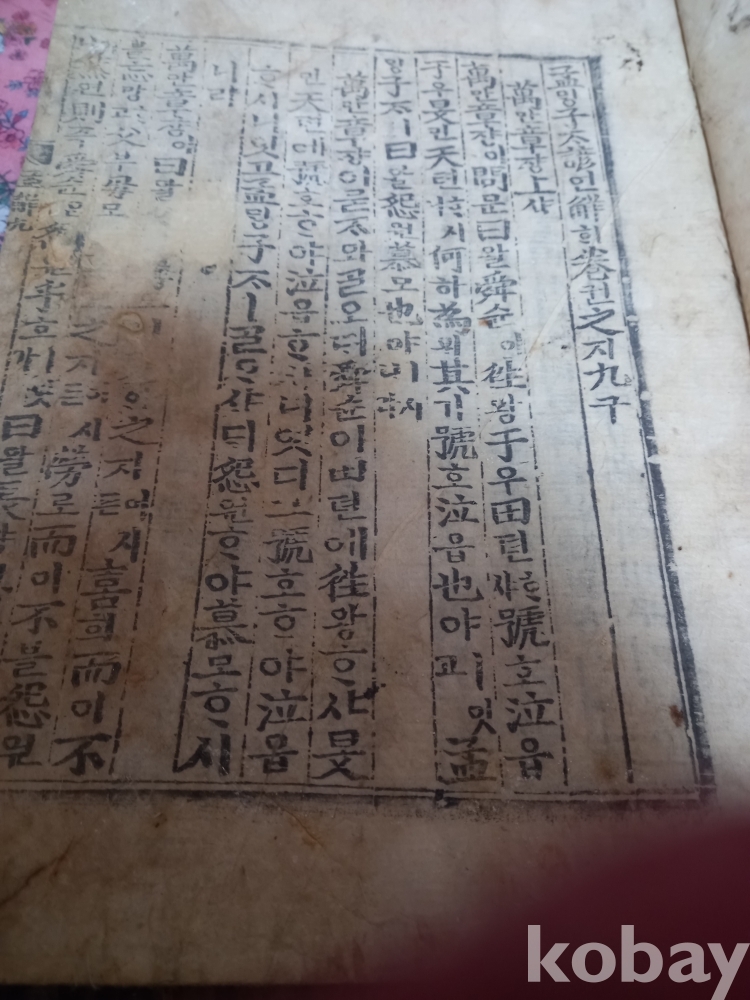 孟밍子ᄌᆞ諺언解ᄒᆡ卷권之지九구
萬만章쟝上샹
萬만章쟝이問문曰왈舜슌이往왕于우田뎐ᄒᆞ샤號호泣읍
于우旻민天텬ᄒᆞ시니何하為위其기號호泣읍也야ㅣ잇고孟
밍子ᄌᆞㅣ曰왈怨원慕모也야ㅣ
萬만章쟝이묻ᄌᆞ와ᄀᆞᆯ오ᄃᆡ舜슌이田뎐에往왕ᄒᆞ샤旻
민天텬에號호ᄒᆞ야泣읍ᄒᆞ시니엇디그號호ᄒᆞ야泣읍
ᄒᆞ시니잇고孟밍子ᄌᆞㅣᄀᆞᆯᄋᆞ샤ᄃᆡ怨원ᄒᆞ야慕모ᄒᆞ시
니라
萬만章쟝이曰왈 之지어시든喜희而이不
블忘망ᄒᆞ고父부母모 之지어시든勞로而이不블怨원
然연則즉舜슌은怨 曰왈長
kobay